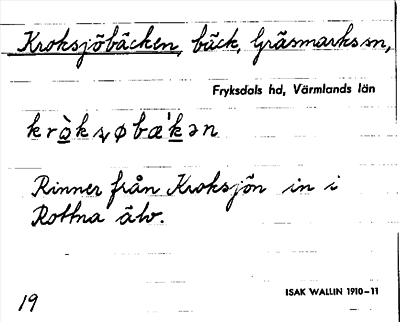 Kroksjöbäcken, bäck, Gräsmarks sn,
Fryksdals hd, Värmlands län
kròkȿøbæ'kən
Rinner från Kroksjön in i
Rottna älv.
ISAK WALLIN 1910–11
19